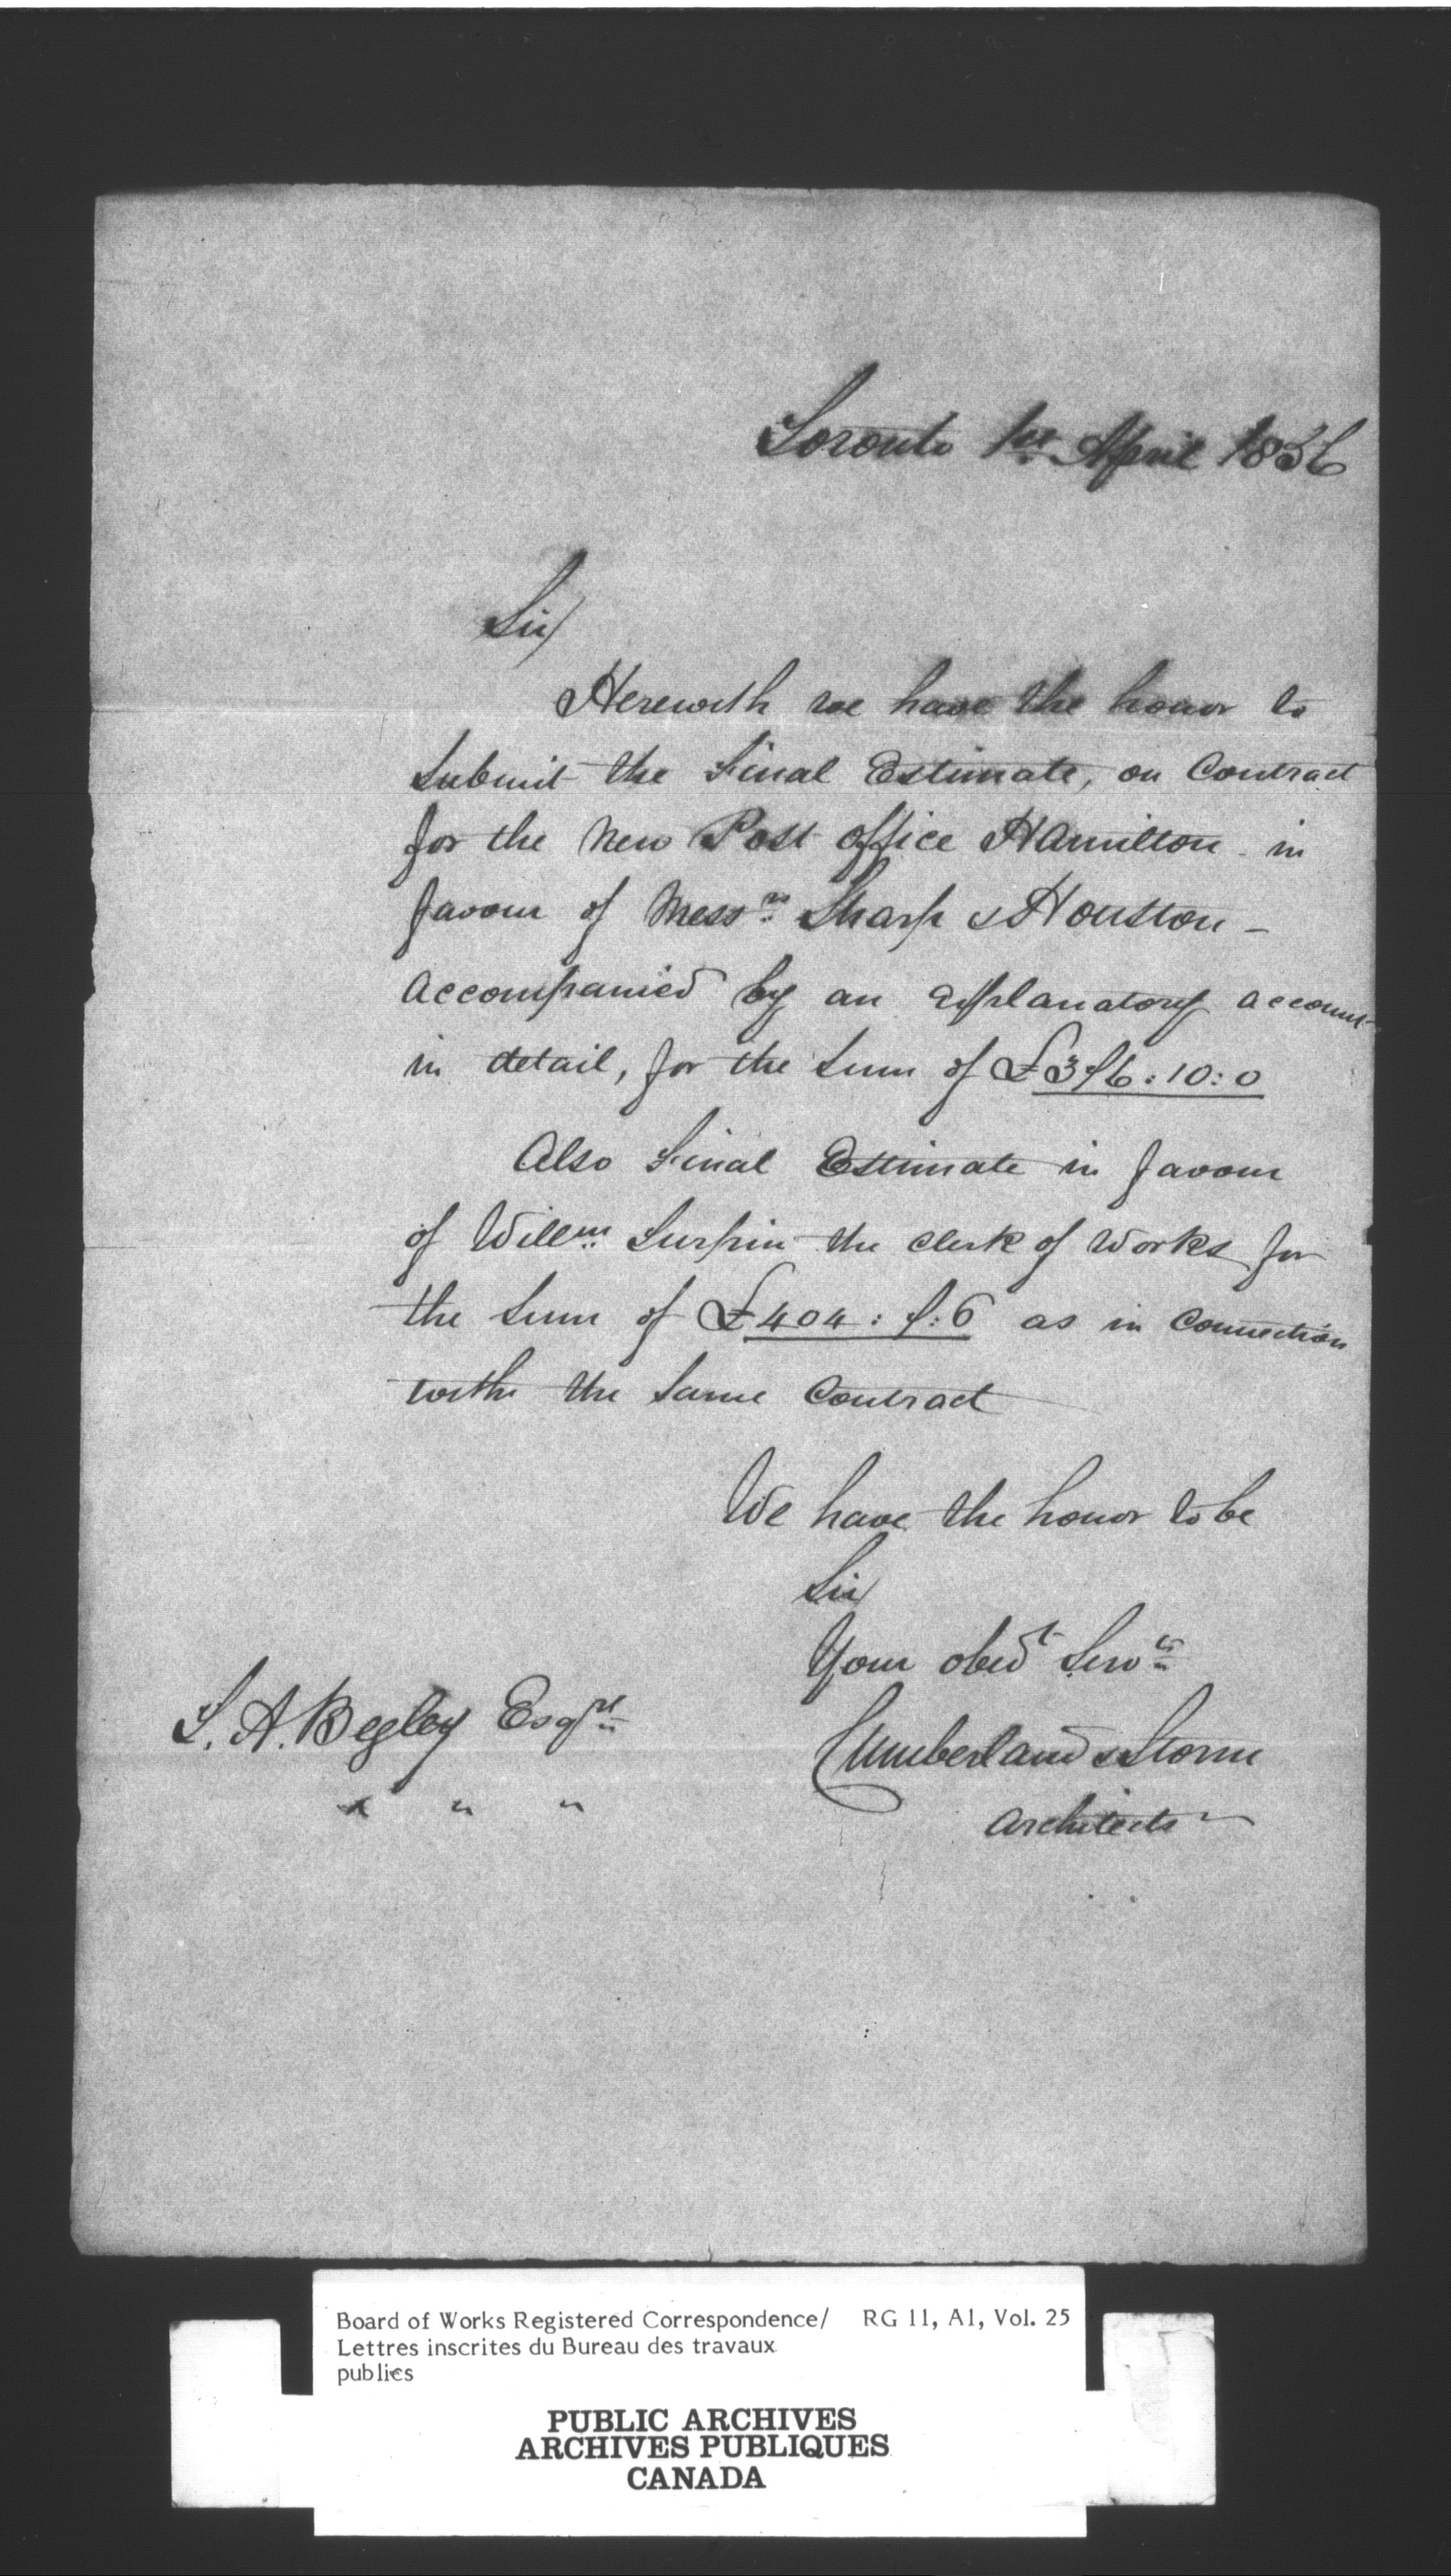 Toronto 1st April 1856
Sir/
Herewith we have the honor to
submit the Final Estimate, on Contract
for the New Post Office Hamilton in
favour of Messrs Sharp & Houston -
accompanied by an explanatory account
in detail, for the Sum of
Also Final Estimate in favour
of Willm Turpin the Clerk of Works for
the Sum of as in Connection
with the Same Contract
We have the honor to be
Sir/
Your obedt Servts
Cumberland & Storm
Architects
T. A. Begley Esqre
" " "
Board of Works Registered Correspondence/ RG 11, A1, Vol. 25
Lettres inscrites du Bureau des travaux
publics
PUBLIC ARCHIVES
ARCHIVES PUBLIQUES
CANADA